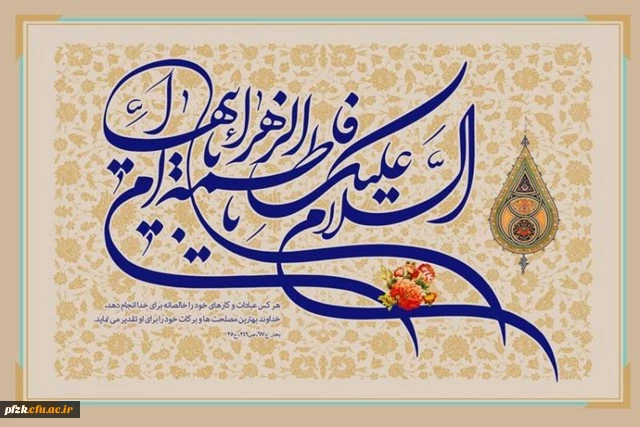 السلام علیک یا فاطمة الزهراء یا أم أبیها
هر کس عبادات و کارهای خود را خالصانه برای خدا انجام دهد،
خداوند بهترین مصلحت ها و برکات خود را برای او تقدیر می نماید.
بحار، ج۶۷، ص۲۴۹، ح۲۵
pfzk.cfu.ac.ir